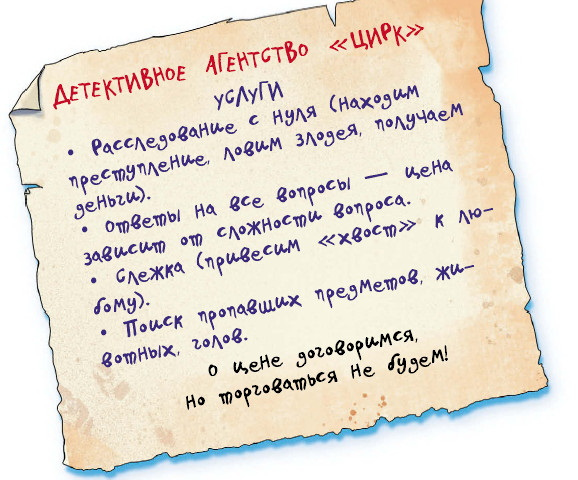 Детективное агентство «Цирк»
услуги
• Расследование с нуля (находим
преступление, ловим злодея, получаем
деньги).
• Ответы на все вопросы — цена
зависит от сложности вопроса.
• Слежка (привесим «хвост» к лю-
бому).
• Поиск пропавших предметов, жи-
вотных, голов.
О цене договоримся,
но торговаться не будем!